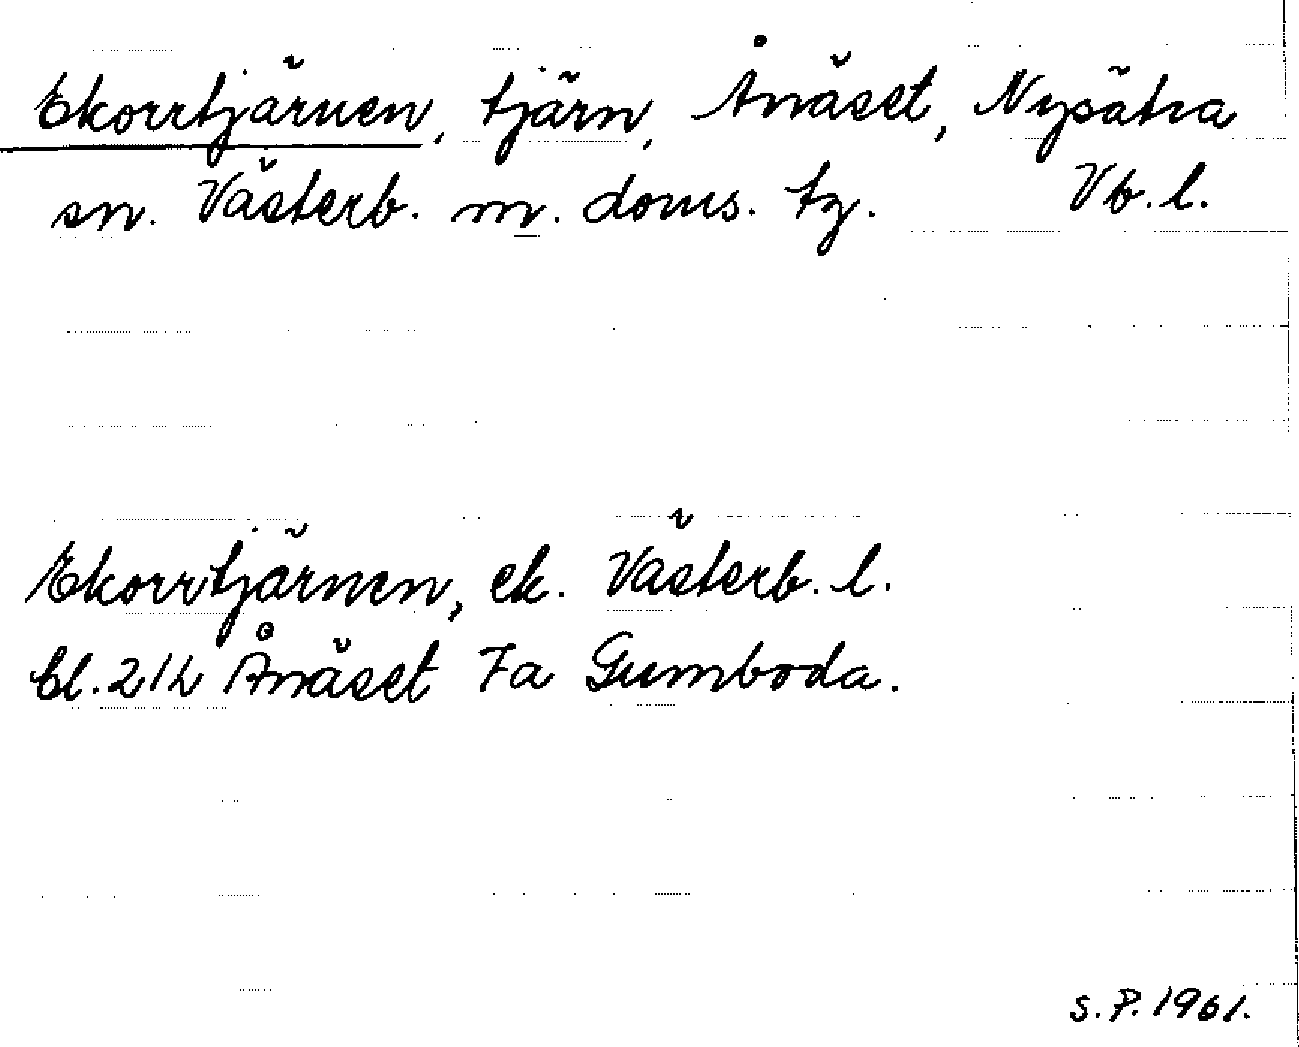 Ekorrtjärnen, tjärn, Ånäset, Nysätra
sn. Västerb. m. doms. tg. Vb. l.
Ekorrtjärnen, ek. Västerb. l.
bl. 21h Ånäset 7a Gumboda.
S. P. 1961.